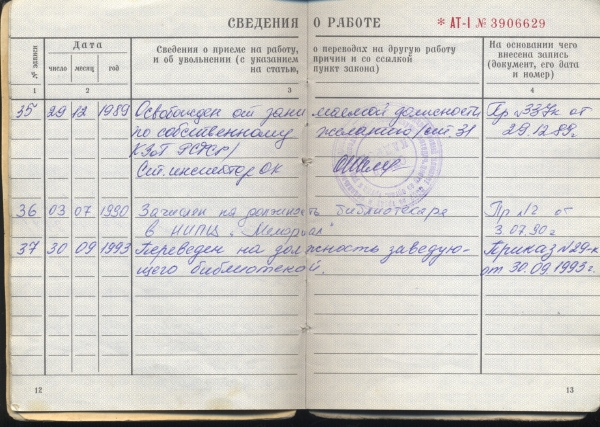 СВЕДЕНИЯ О РАБОТЕ
* АТ-I № 3906629
№ записи
Дата
число месяц год
Сведения о приеме на работу, о переводах на другую работу
и об увольнении (с указанием причин и со ссылкой
на статью, пункт закона)
На основании чего
внесена запись
(документ, его дата
и номер)
1 2 3 4
35 29 12 1989 Освобожден от занимаемой должности Пр № 337к от
по собственному желанию /ст. 31 29.12.89г.
КЗоТ РСФСР/
Ст. инспектор ОК
36 03 07 1990 Зачислен на должность библиотекаря Пр №2 от
в НИПЦ „Мемориал" 3.07.90г.
37 30 09 1993 Переведен на должность заведую- Приказ №29-к
щего библиотекой. от 30.09.1993г.
12
13